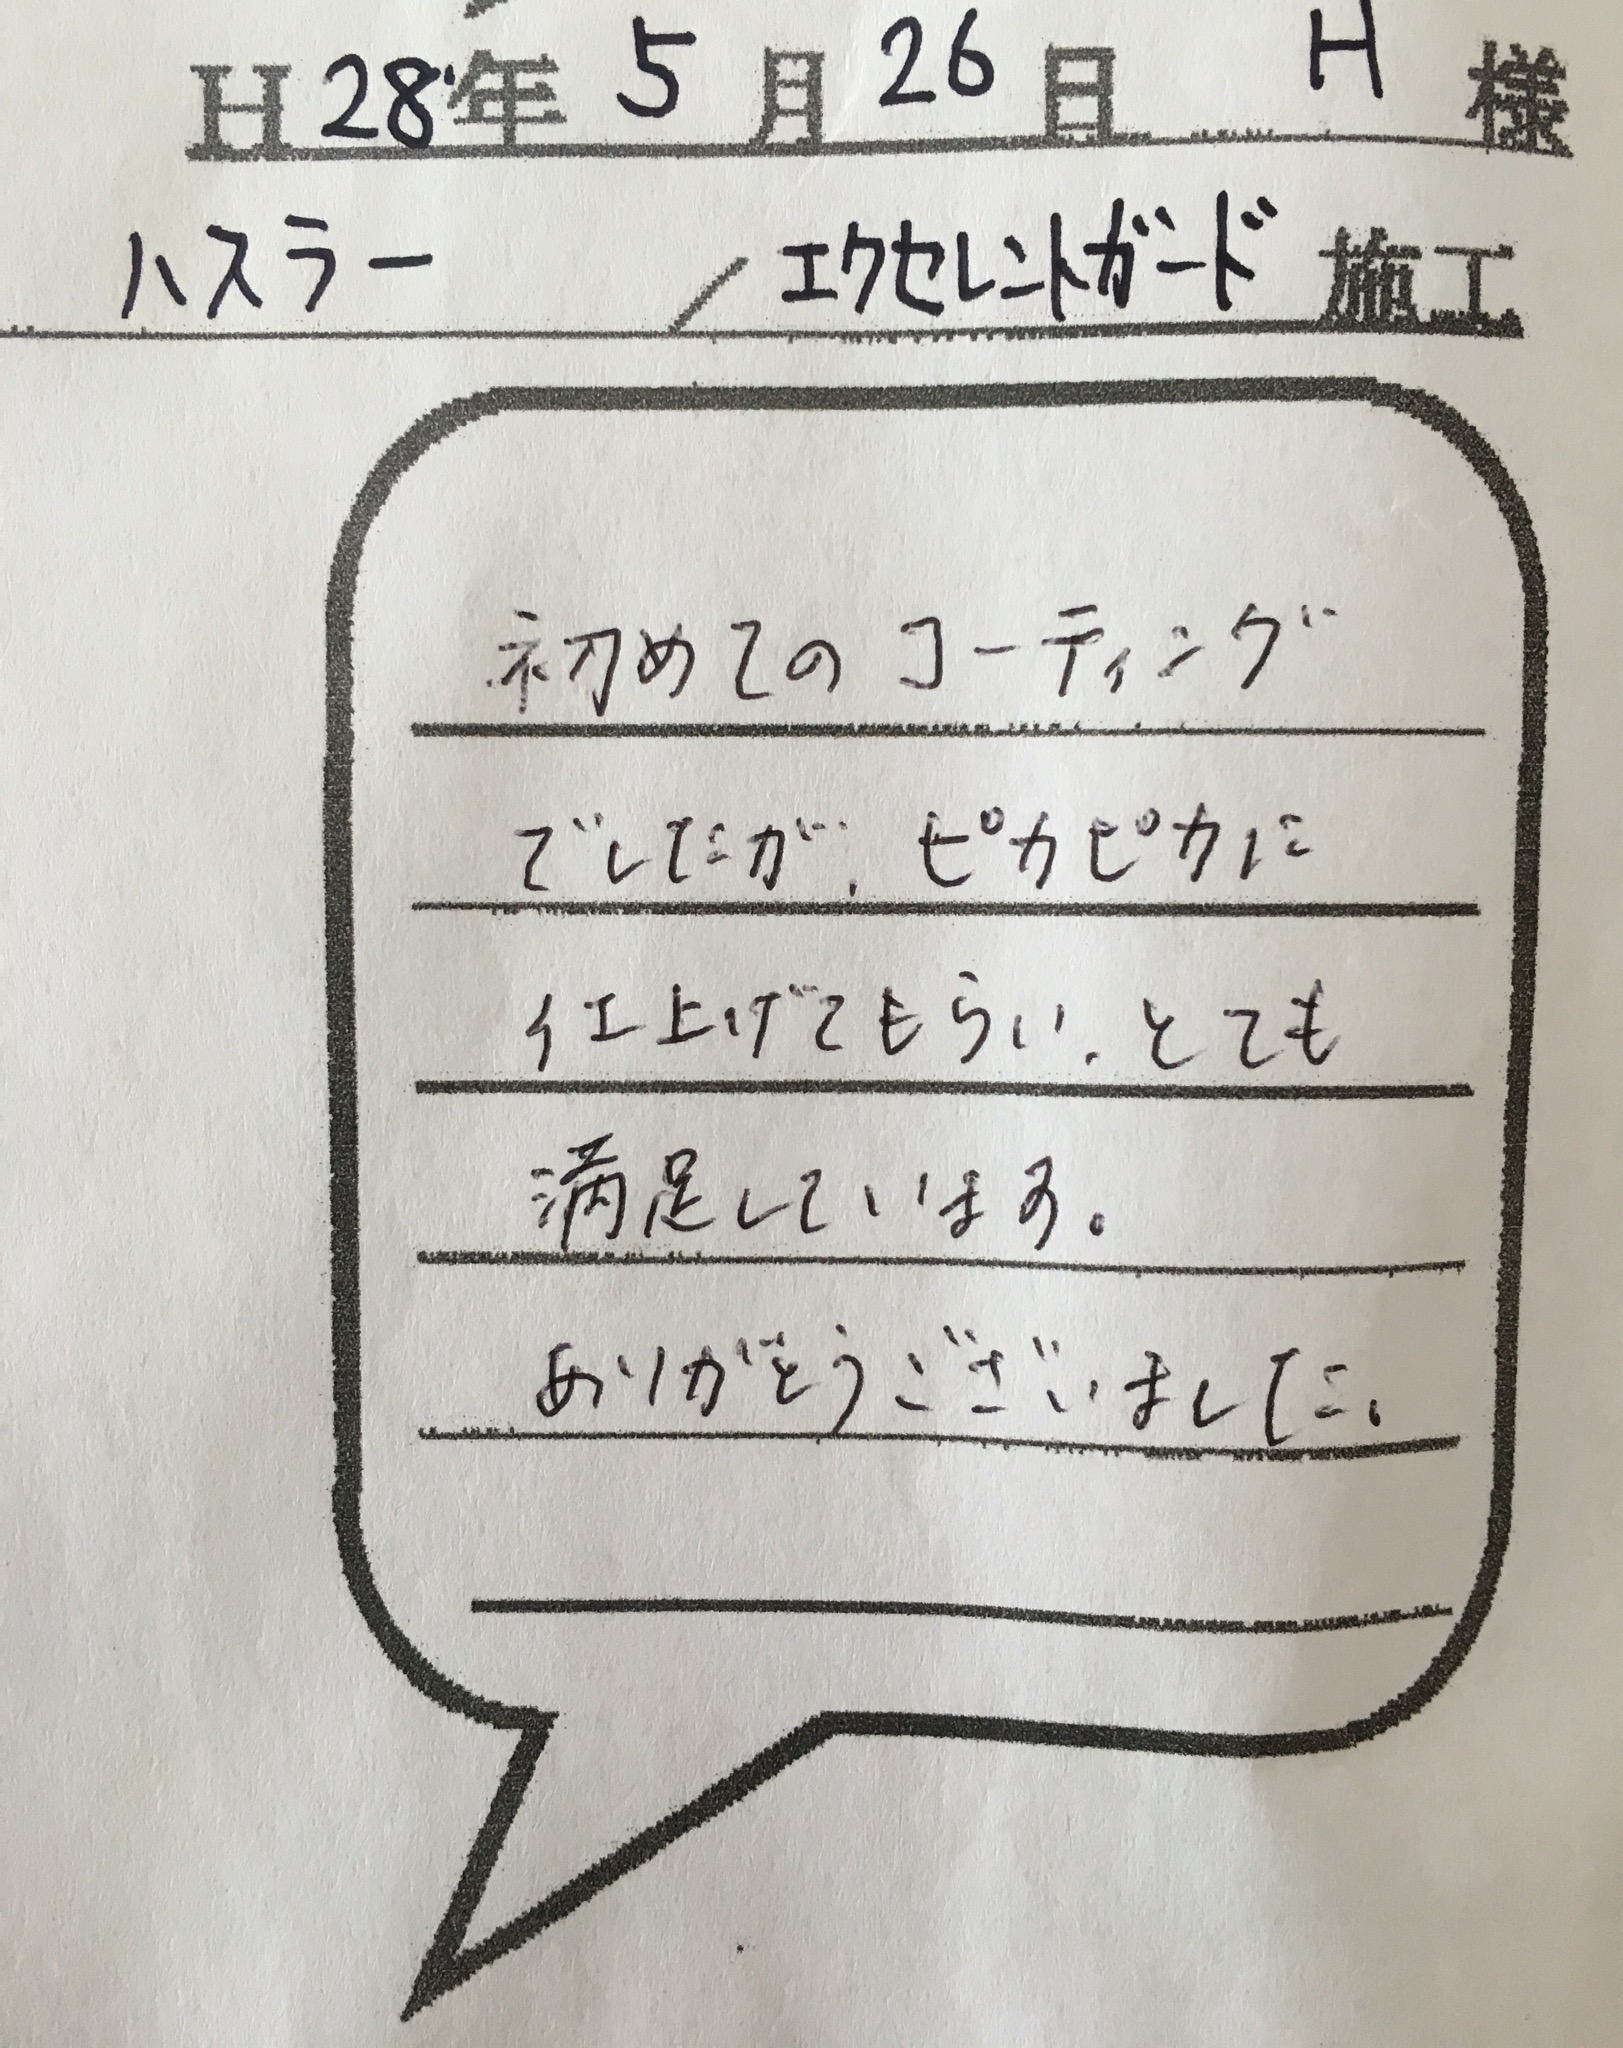 H28年 5月 26日 H 様
ハスラー / エクセレントガード 施工
初めてのコーティング
でしたが、ピカピカに
仕上げてもらい、とても
満足しています。
ありがとうございました。